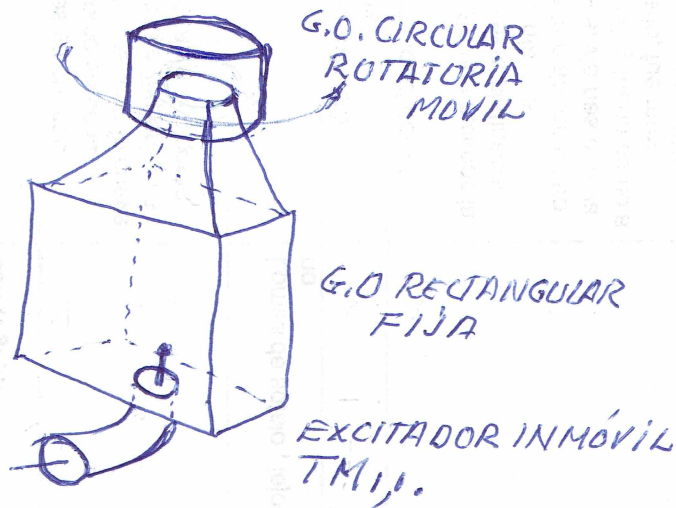 G.O. CIRCULAR
ROTATORIA
MOVIL
G.O RECTANGULAR
FIJA
EXCITADOR INMÓVIL
TM1,1.